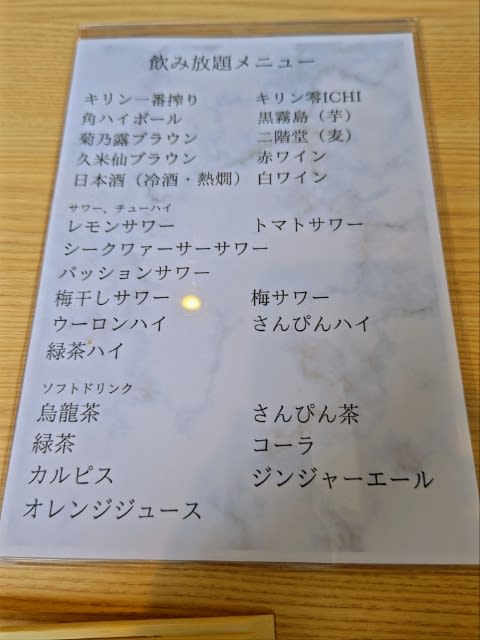 飲み放題メニュー
キリン一番搾り キリン零ICHI
角ハイボール 黒霧島（芋）
菊乃露ブラウン 二階堂（麦）
久米仙ブラウン 赤ワイン
日本酒（冷酒・熱燗） 白ワイン
サワー、チューハイ
レモンサワー トマトサワー
シークワァーサーサワー
パッションサワー
梅干しサワー 梅サワー
ウーロンハイ さんぴんハイ
緑茶ハイ
ソフトドリンク
烏龍茶 さんぴん茶
緑茶 コーラ
カルピス ジンジャーエール
オレンジジュース